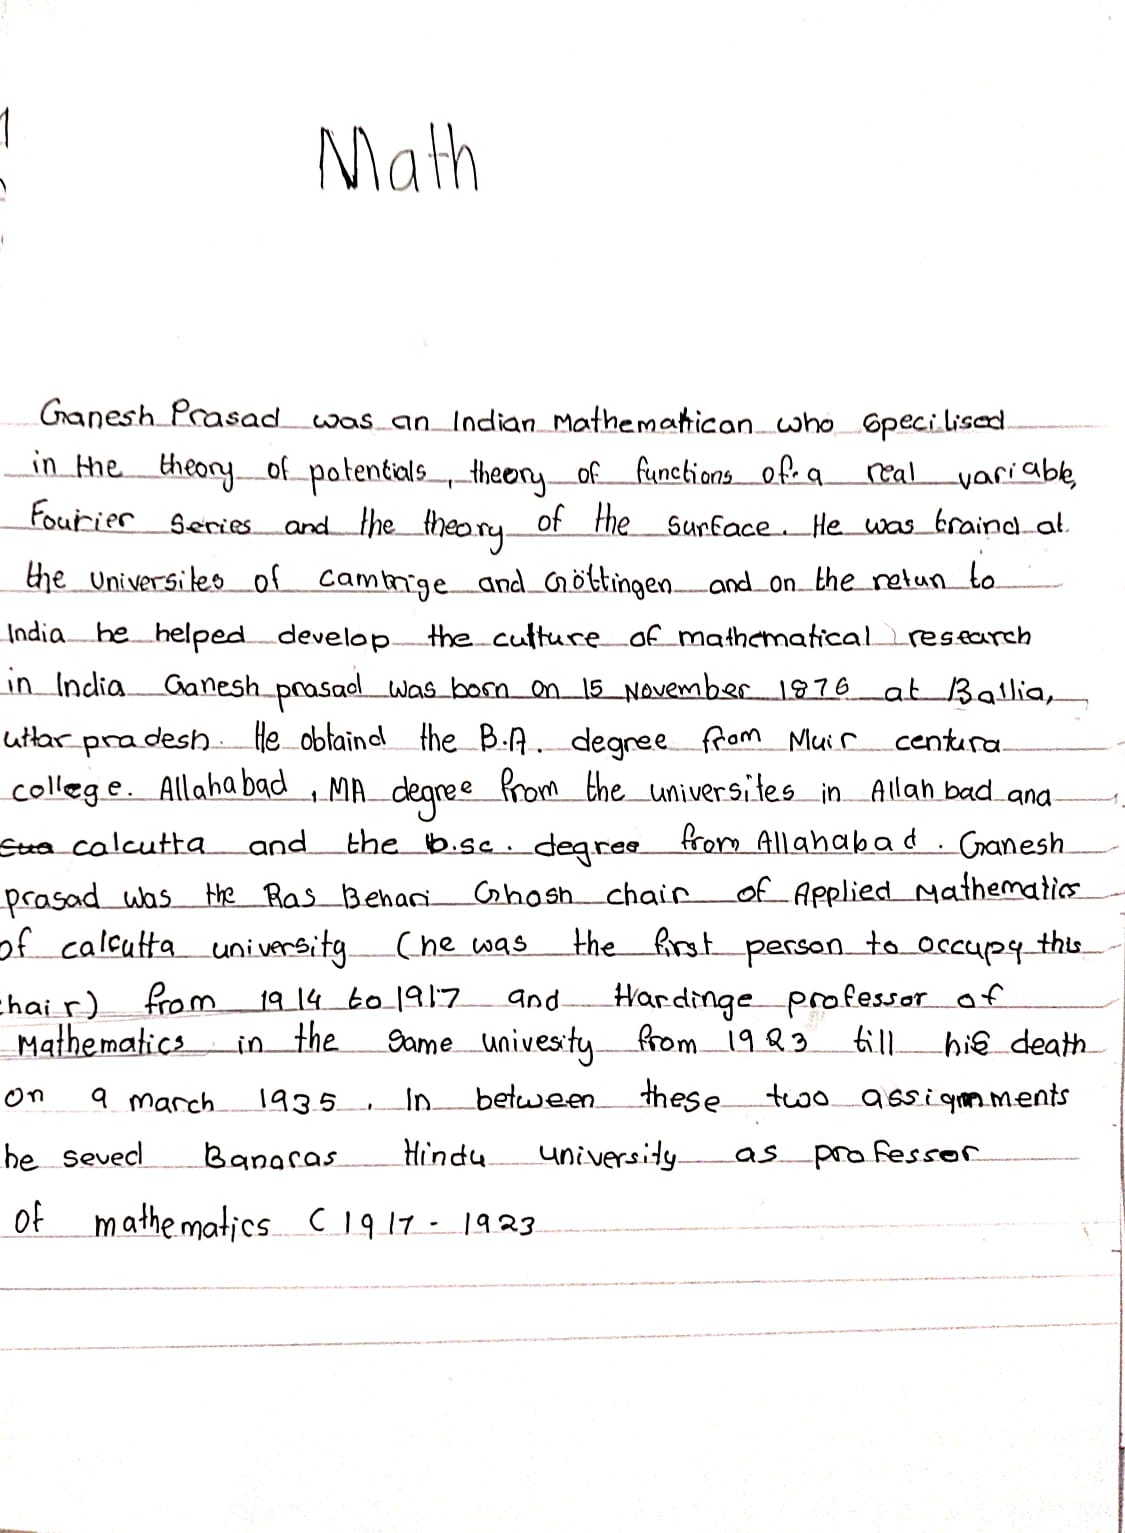 Math
Ganesh Prasad was an Indian Mathemattican who specilised
in the theory of potentials, theory of functions of a real variable,
Fourier Series and the theory of the surface. He was traind at
the Universites of cambrige and Göttingen and on the retun to
India he helped develop the culture of mathematical research
in India Ganesh prasad was born on 15 November 1876 at Ballia,
uttar pradesh. He obtaind the B.A. degree from Muir centura
college. Allahabad , MA degree from the universites in Allahbad and
calcutta and the b.sc. degree from Allahabad. Ganesh
prasad was the Ras Behari Ghosh chair of Applied Mathematics
of calcutta university (he was the first person to occupy this
hair) from 1914 to 1917 and Hardinge professor of
Mathematics in the same univesity from 1923 till his death
on 9 march 1935. In between these two assignments
he seved Banaras Hindu university as professor
of mathematics ( 1917 - 1923